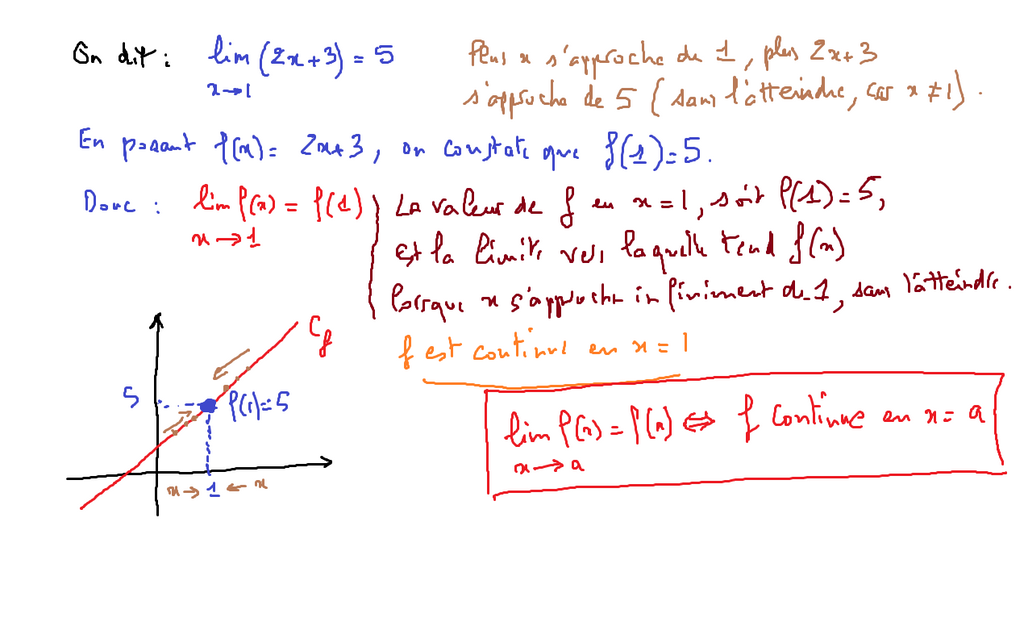 On dit : lim (2x+3) = 5
x→1
Plus x s'approche de 1, plus 2x+3
s'approche de 5 (sans l'atteindre, car x ≠ 1).
En posant f(x) = 2x+3, on constate que f(1) = 5.
Donc : lim f(x) = f(1)
x→1
La valeur de f en x = 1, soit f(1) = 5,
est la limite vers laquelle tend f(x)
lorsque x s'approche infiniment de 1, sans l'atteindre.
f est continue en x = 1
lim f(x) = f(x) ⇔ f continue en x = a
x→a
Cf
5
f(1)=5
x→ 1 ← x